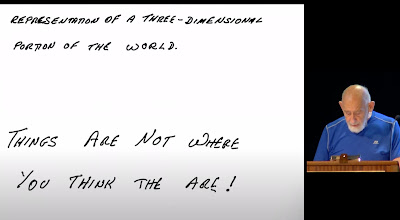 REPRESENTATION OF A THREE-DIMENSIONAL
PORTION OF THE WORLD.
THINGS ARE NOT WHERE
YOU THINK THE ARE!